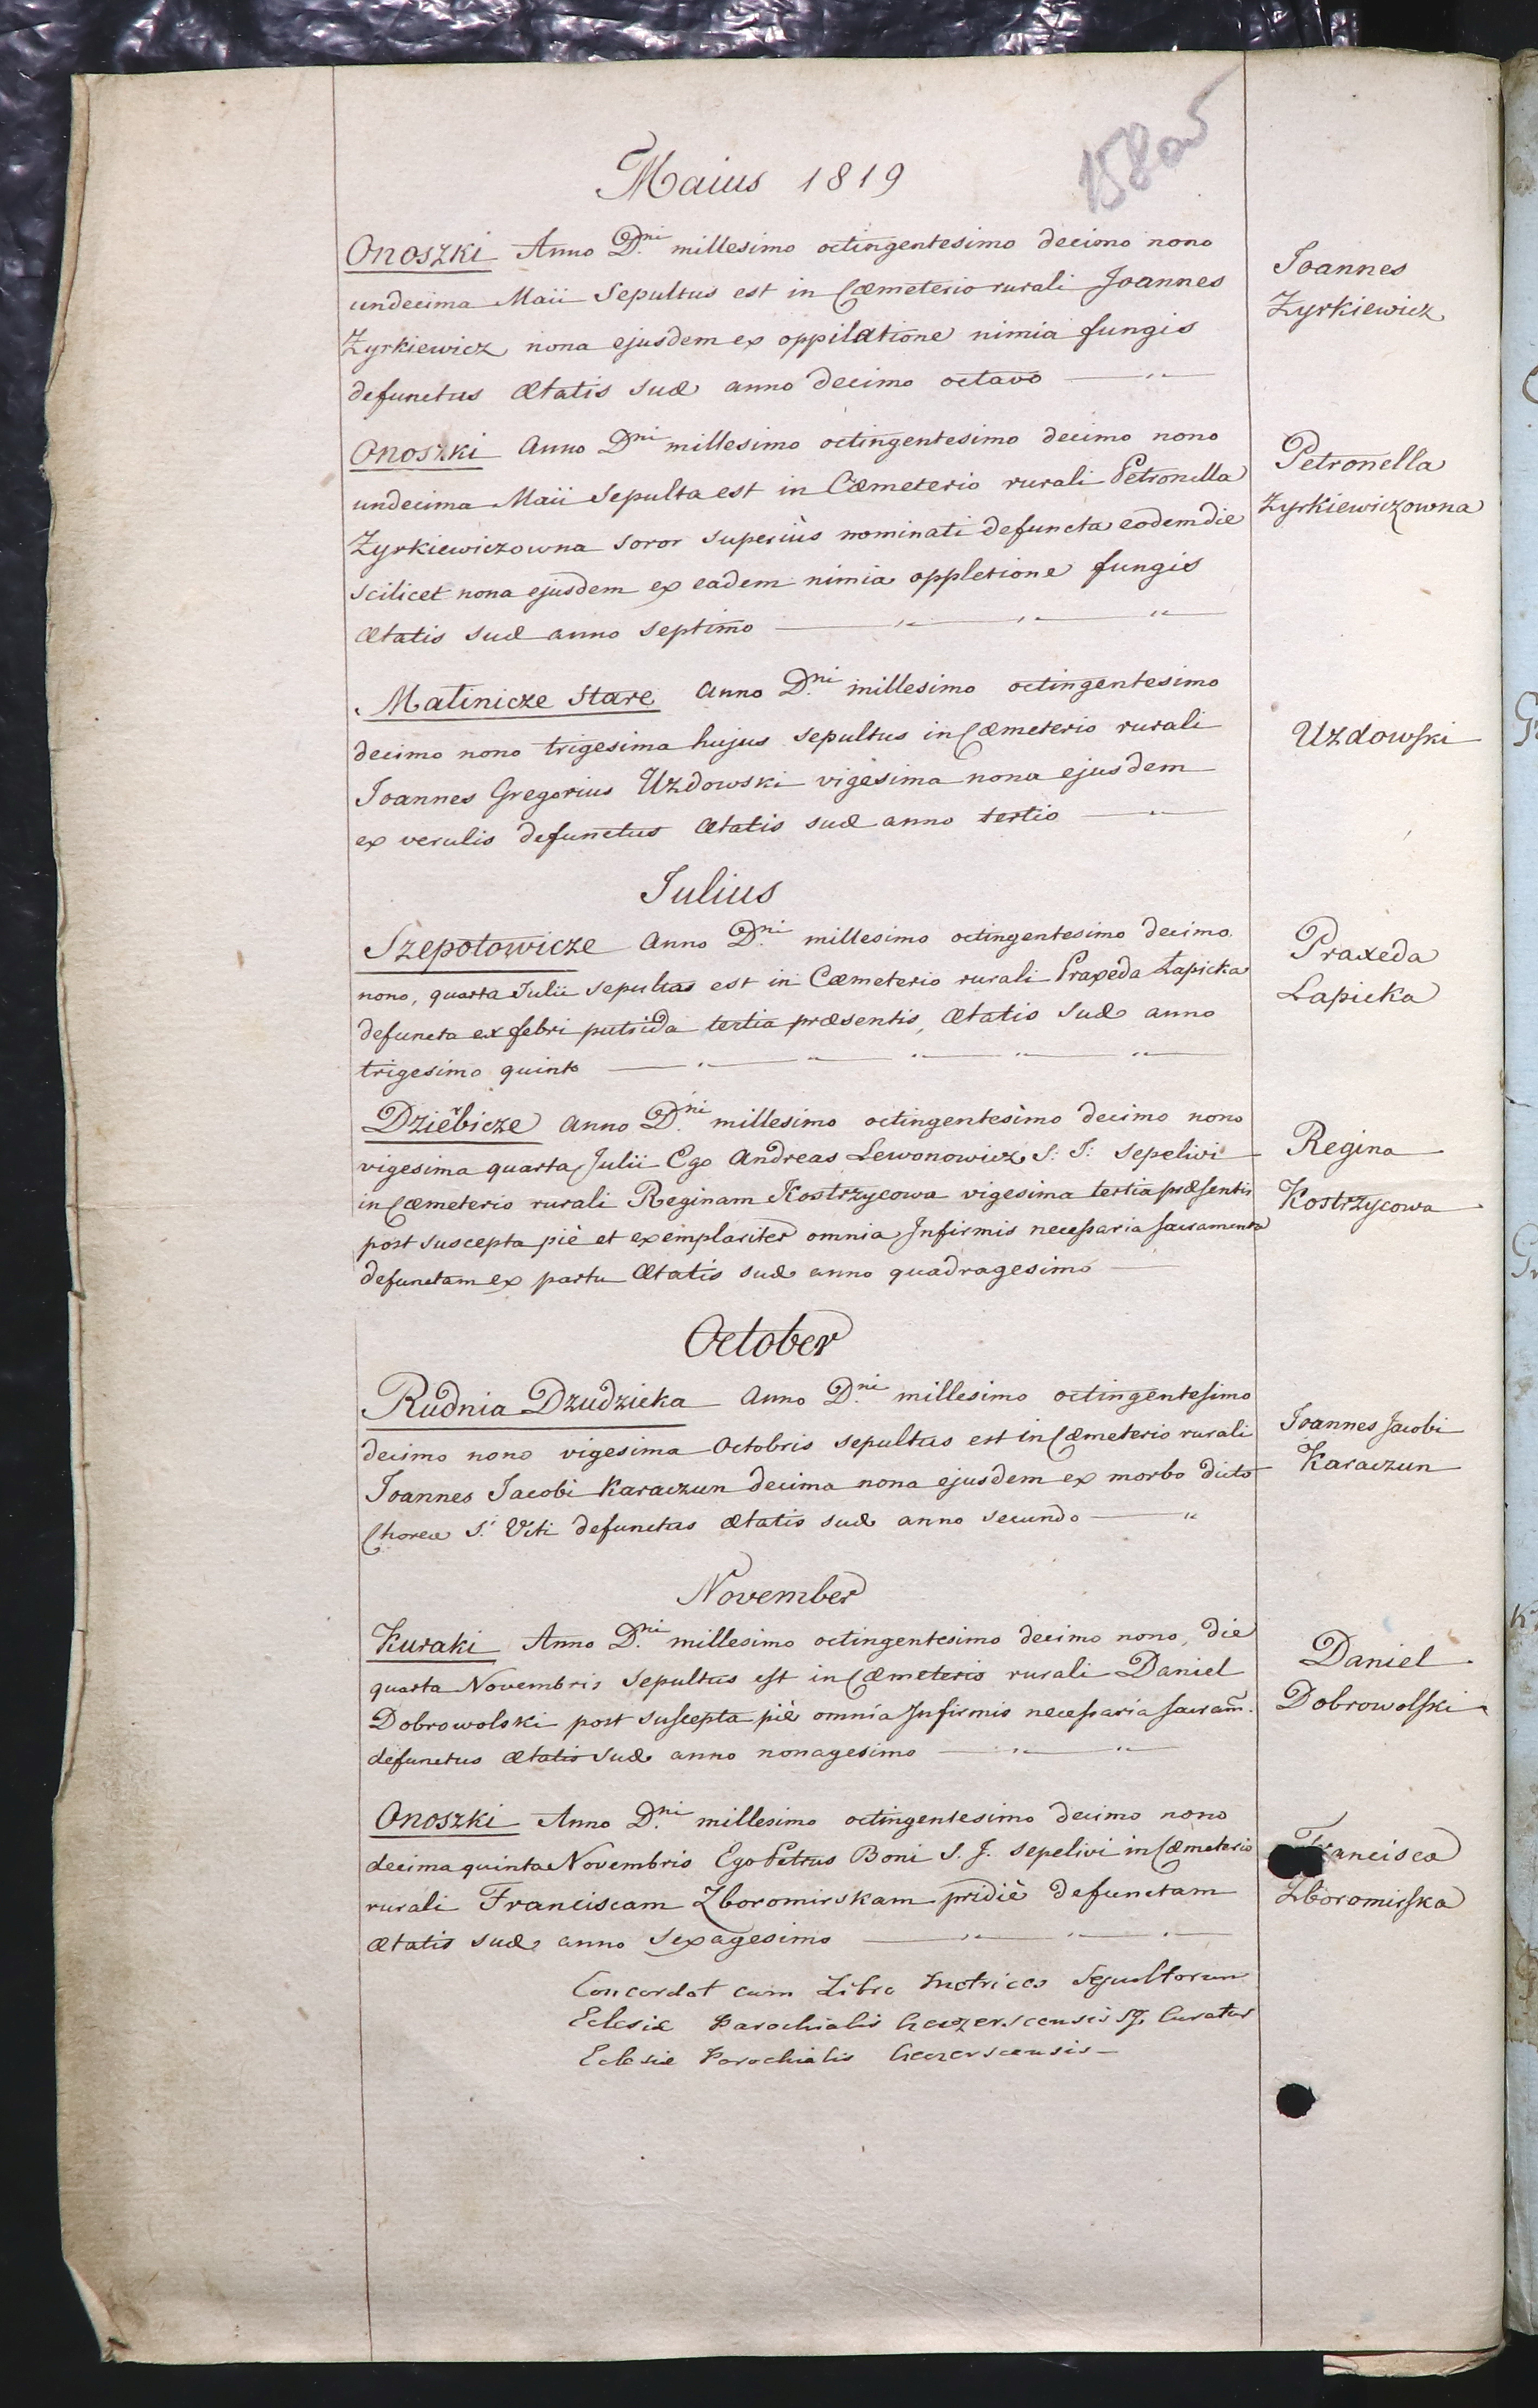 158 av
Maius 1819
Onoszki Anno D.ni millesimo octingentesimo decimo nono
undecima Maii Sepultus est in Cæmeterio rurali Joannes
Zyrkiewicz nona ejusdem ex oppilatione nimia fungis
defunctus ætatis suæ anno decimo octavo
Joannes
Zyrkiewicz
Onoszki Anno D.ni millesimo octingentesimo decimo nono
undecima Maii Sepulta est in Cæmeterio rurali Petronella
Zyrkiewiczowna soror superiùs nominati defuncta eodem die
scilicet nona ejusdem ex eadem nimia oppletione fungis
ætatis suæ anno septimo
Petronella
Zyrkiewiczowna
Malinicze Stare Anno D.ni millesimo octingentesimo
decimo nono trigesima hujus sepultus in Cæmeterio rurali
Joannes Gregorius Uzdowski vigesima nona ejusdem
ex verulis defunctus ætatis suæ anno tertio
Uzdowski
Julius
Szepotowicze Anno D.ni millesimo octingentesimo decimo
nono, quarta Julii sepultas est in Cæmeterio rurali Praxeda Łapicka
defuncta ex febri putrida tertia præsentis, ætatis suæ anno
trigesimo quinto
Praxeda
Lapicka
Dziebicze Anno D.ni millesimo octingentesimo decimo nono
vigesima quarta Julii Ego Andreas Lewonowicz S: J: sepelivi
in Cæmeterio rurali Reginam Kostrzycowa vigesima tertia præsentis
post suscepta piè et exemplariter omnia Infirmis necessaria sacramenta
defunctam ex partu ætatis suæ anno quadragesimo
Regina
Kostrzycowa
October
Rudnia Dzudzicka Anno D.ni millesimo octingentesimo
decimo nono vigesima Octobris sepultus est in Cæmeterio rurali
Joannes Jacobi Karaczun decima nona ejusdem ex morbo dicto
Choreæ S.i Viti defunctus ætatis suæ anno secundo
Joannes Jacobi
Karaczun
November
Kuraki Anno D.ni millesimo octingentesimo decimo nono, die
quarta Novembris Sepultus est in Cæmeterio rurali Daniel
Dobrowolski post suscepta piè omnia Infirmis necessaria sacram̃.
defunctus ætatis suæ anno nonagesimo
Daniel
Dobrowolski
Onoszki Anno D.ni millesimo octingentesimo decimo nono
decima quinta Novembris Ego Petrus Boni S. J. sepelivi in Cæmeterio
rurali Franciscam Zboromirskam pridiè defunctam
ætatis suæ anno sexagesimo
Francisca
Zboromirska
Concordat cum Libro Metrices Sepultorum
Eclesiæ Parochialis Curatus
Eclesiæ Parochialis